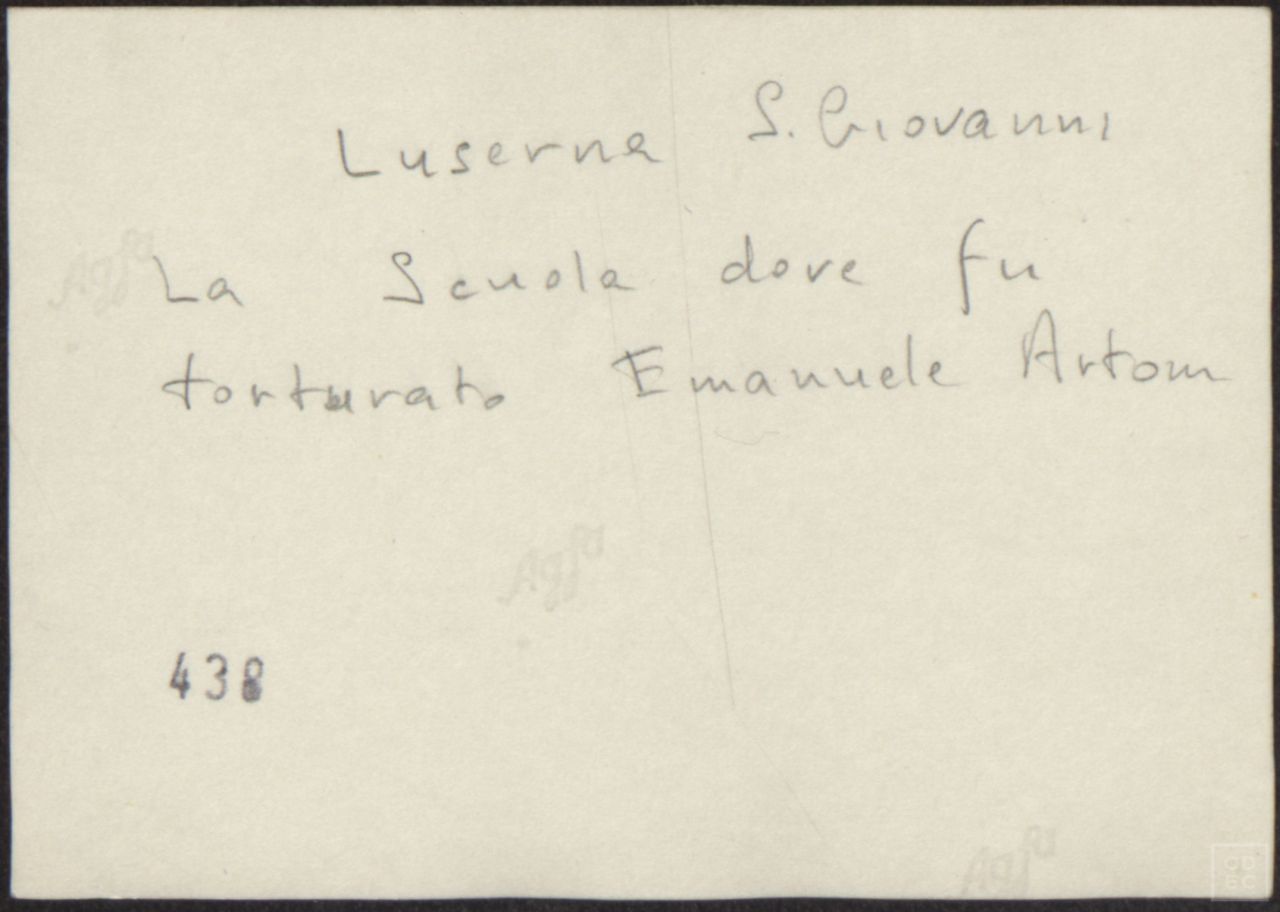 Luserna S. Giovanni
La Scuola dove fu
torturato Emanuele Artom
Agfa
Agfa
438
Agfa
CD
EC